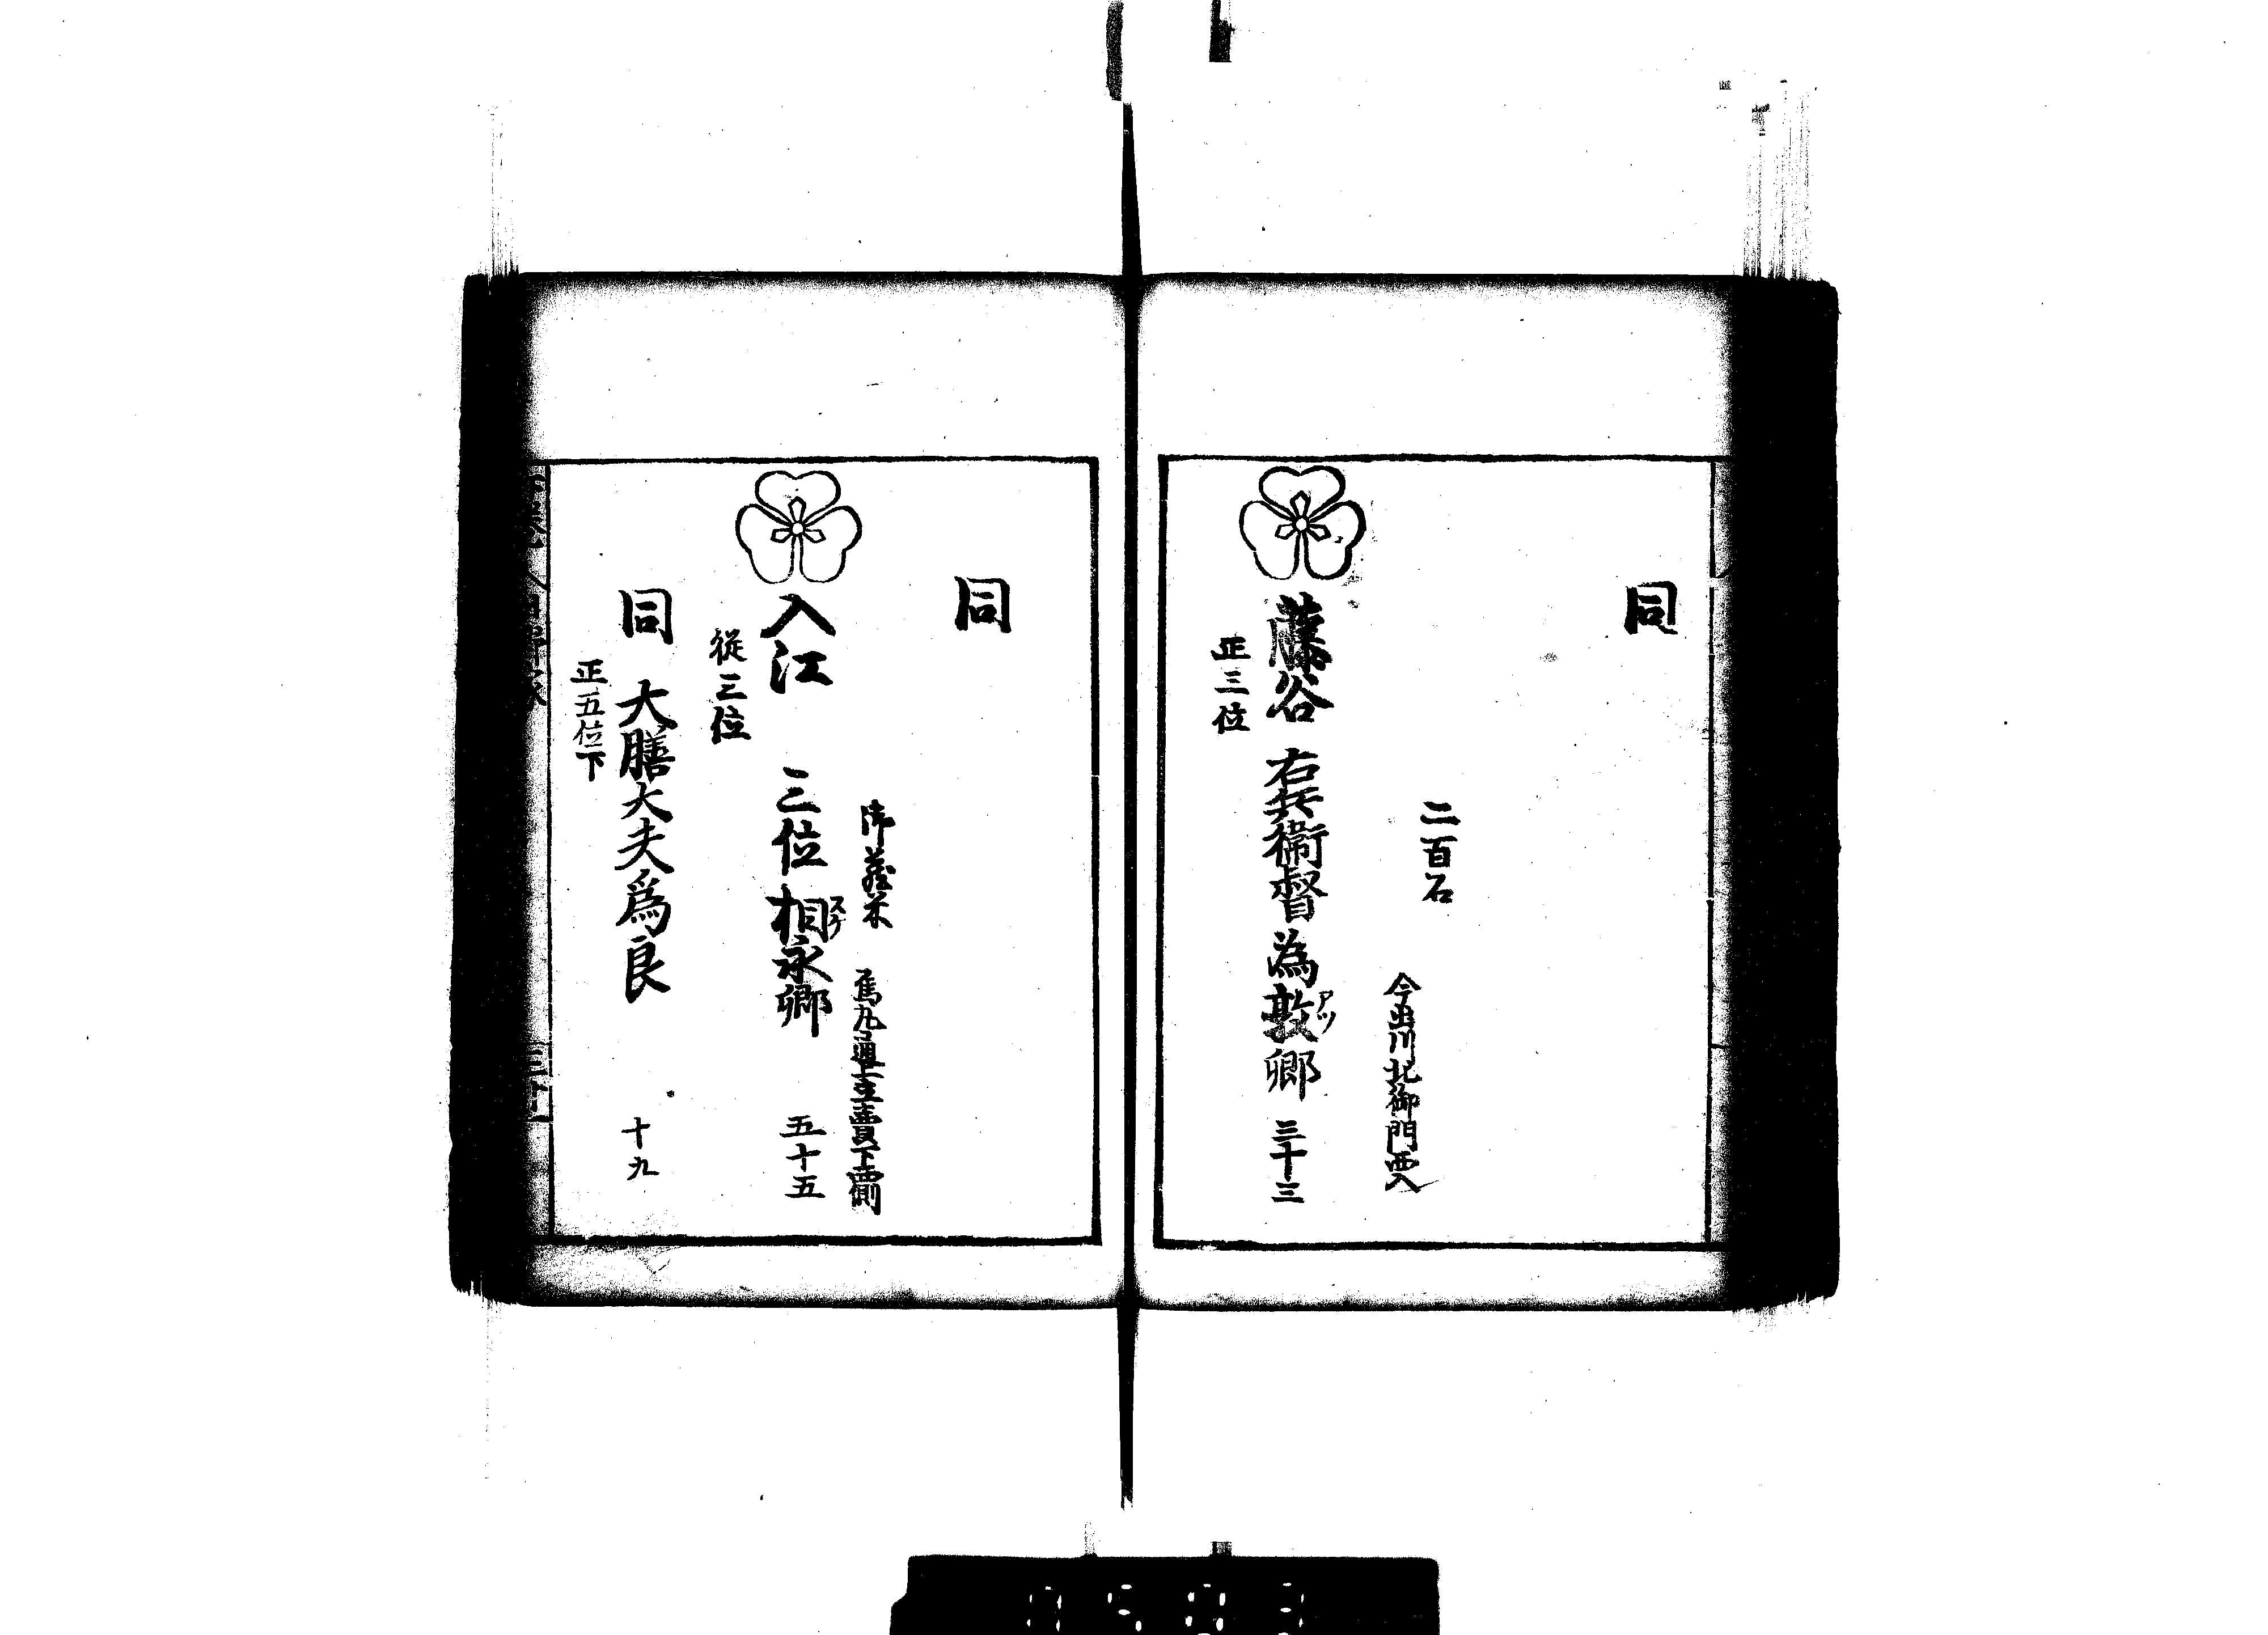 同
二百石
今出川北御門西入
藤谷 右兵衞督為敦卿 三十三
アツ
正三位
同
御藏米
烏丸通上立賣下西側
入江 三位相永卿 五十五
スケ
従三位
同 大膳大夫爲良 十九
正五位下